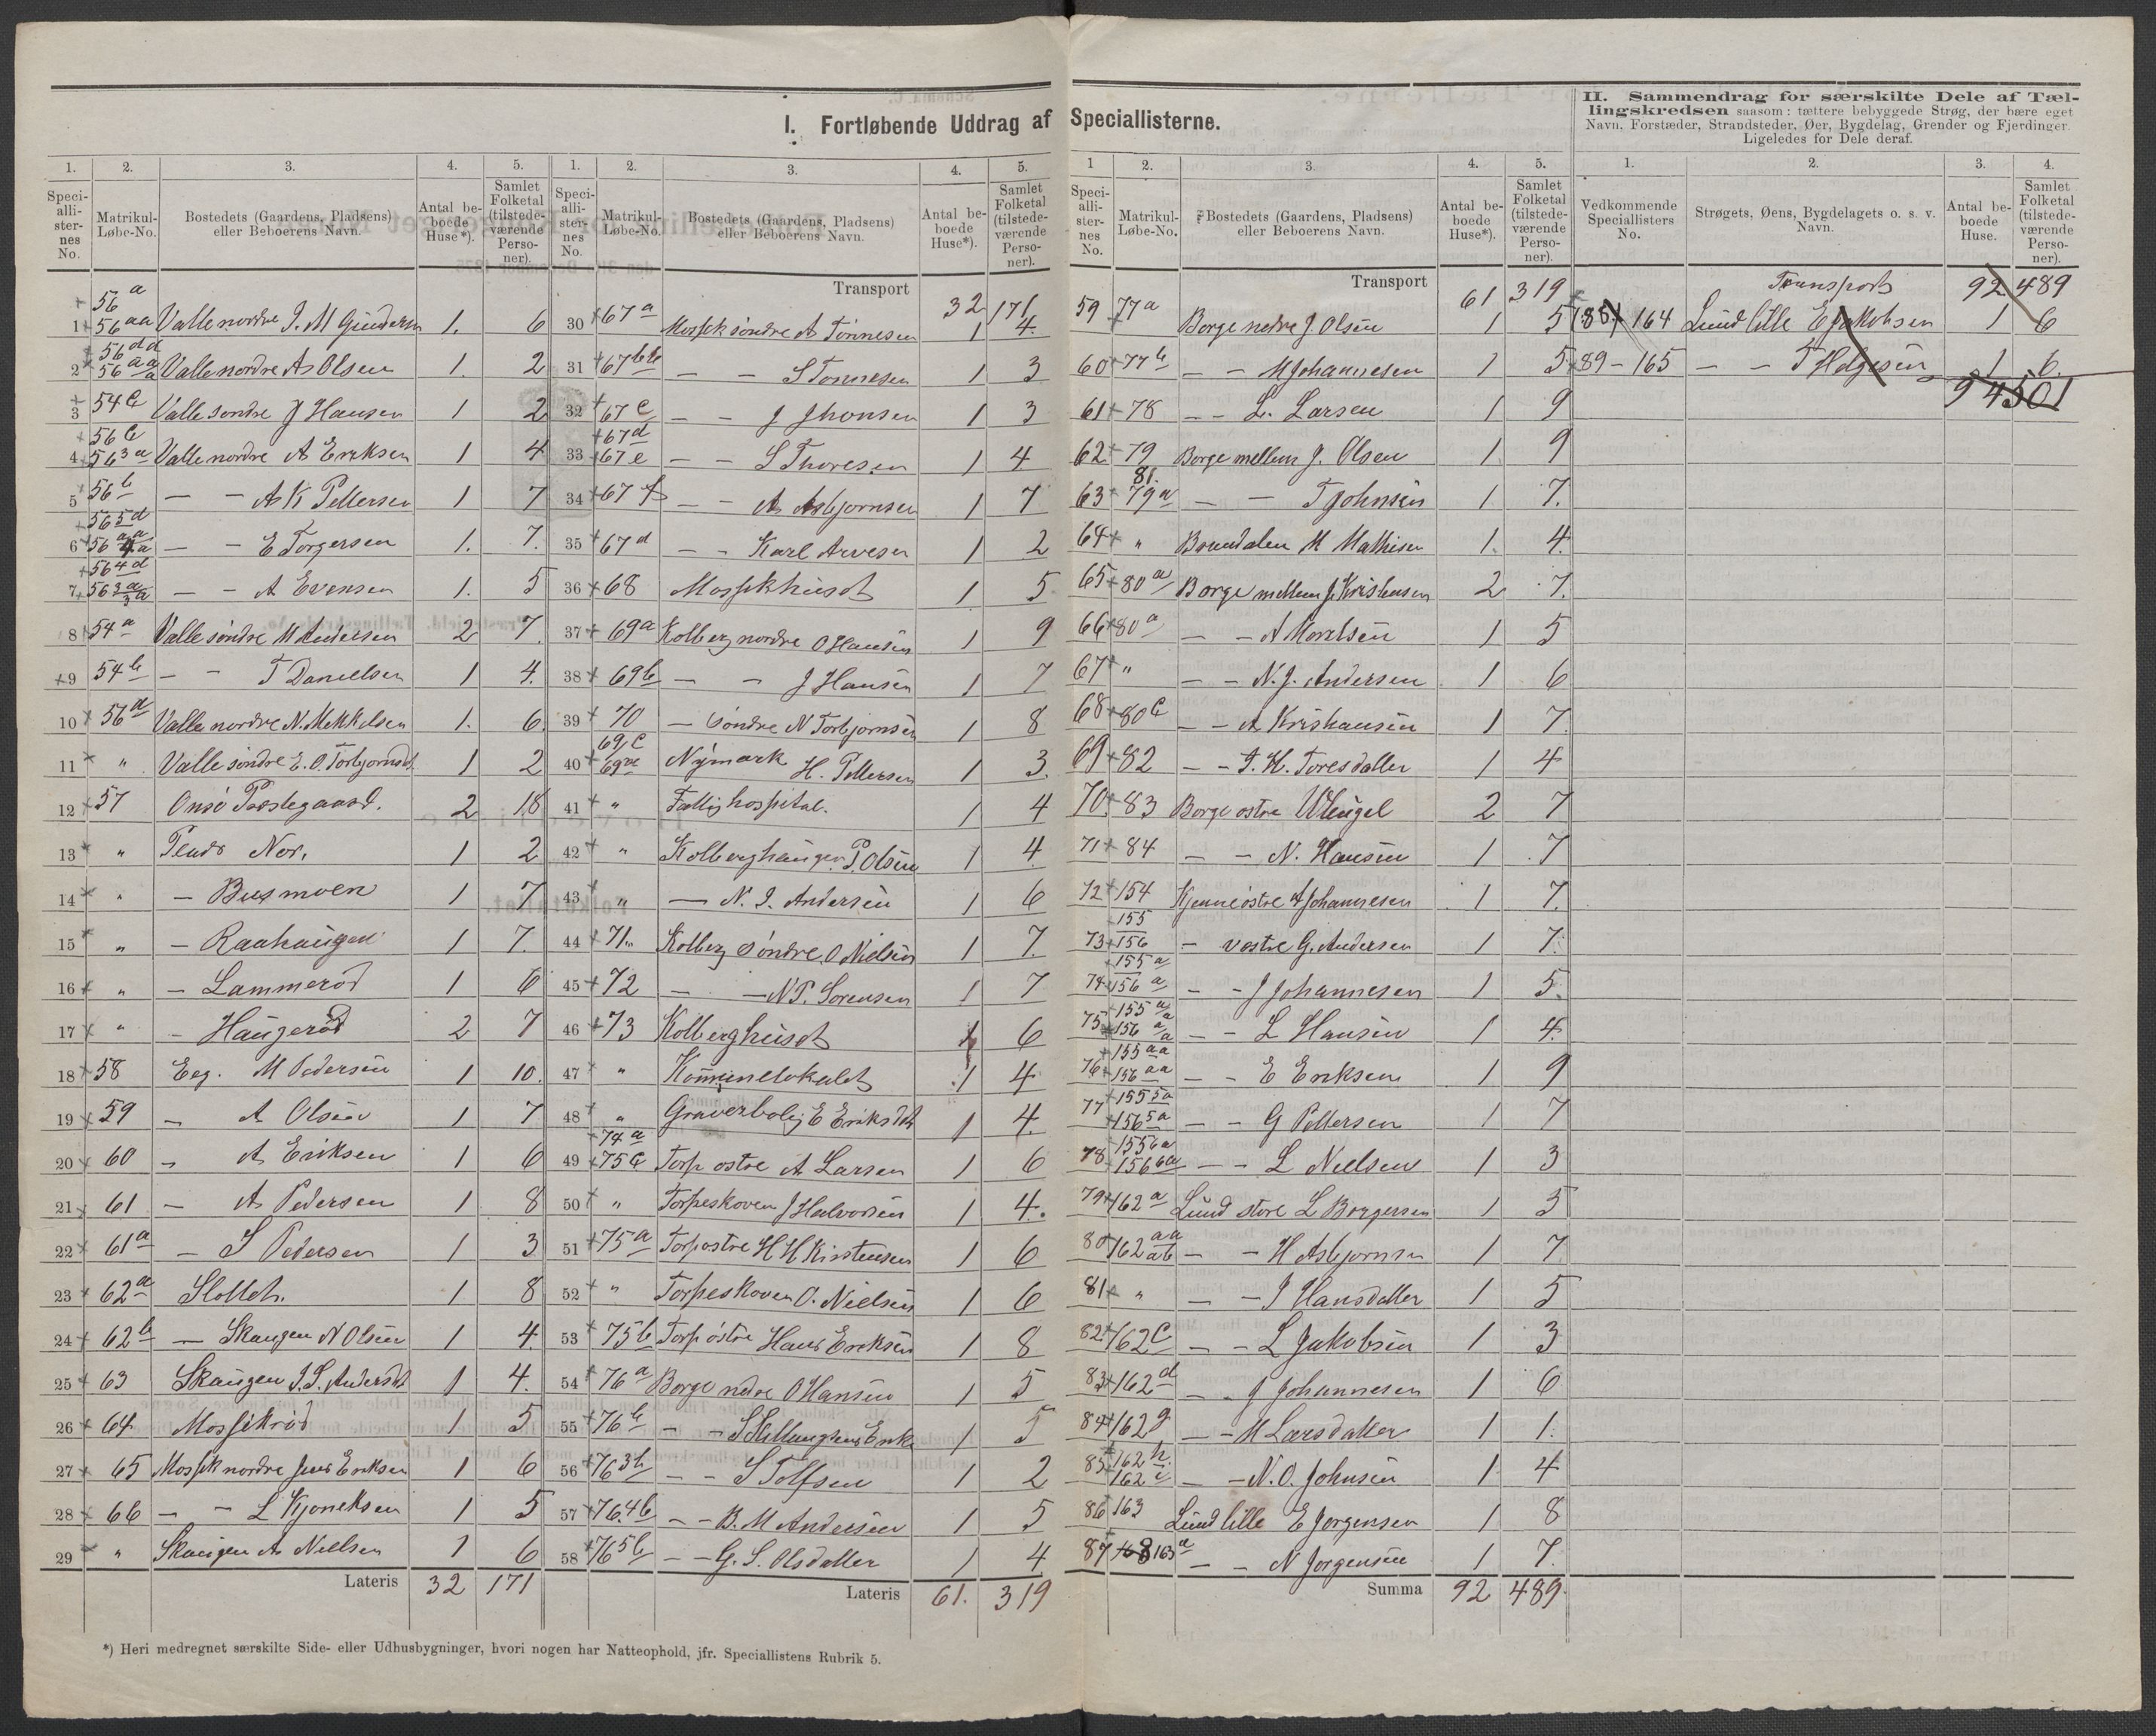 I. Fortløbende Uddrag af Speciallisterne.
II. Sammendrag for særskilte Dele af Tællingskredsen saasom: tættere bebyggede Strøg, der bære eget
Navn, Forstæder, Strandsteder, Øer, Bygdelag, Grender og Fjerdinger.
Ligeledes for Dele deraf.
1. 2. 3. 4. 5.
Speciallisternes No. Matrikul-Løbe-No. Bostedets (Gaardens, Pladsens) eller Beboerens Navn. Antal beboede Huse*). Samlet Folketal (tilstedeværende Personer).
1 56 a 56 aa Valle nordre J. M Gundersen 1. 6
2 56 dd 56 aa a Valle nordre A Olsen 1. 2
3 54 c Valle søndre J Hansen 1 2
4 56 c 56 3 a Valle nordre A Eriksen 1 4
5 56 b — — A K Pettersen 1 7
6 56 5 d 56 4 a — — E Torgersen 1. 7.
7 56 4 d 56 3 a — — A Evensen 1. 5
8 54 a Valle søndre M Andersen 2 7
9 54 b — — T Danielsen 1 4.
10 56 d Valle nordre N. Mikkelsen 1. 6
11 " Valle søndre E. O. Torbjørnsd 1 2
12 57 Onsø Præstegaard. 2 18
13 " Plads Nor. 1 2
14 " — Busmoen 1 7
15 " — Raahaugen 1 7.
16 " — Lammerød 1 6
17 " — Haugerød 2 7
18 58 Eeg. M Pedersen 1 10.
19 59 — A Olsen 1 7
20 60 — A Eriksen 1 6
21 61 — A Pedersen 1 8
22 61 a — S Pedersen 1 3
23 62 a Slottet. 1 8
24 62 b — Skaugen N Olsen 1 4.
25 63 Skaugen J. S. Andersd 1 4.
26 64 Mossikrød 1 5
27 65 Mossik nordre Jens Eriksen 1 6
28 66 — — L Kjoneksen 1 5
29 " Skaugen A Nielsen 1 6
Lateris 32 171
Transport 32 171
30 67 a Mossik søndre A Tønnesen 1 4.
31 67 bb — — S Tønnesen 1 3
32 67 c — — J Jhonsen 1 3
33 67 d 67 e — — S Thoresen 1 4
34 67 f — — A Asbjørnsen 1 7
35 67 d — — Karl Arvesen 1 2
36 68 Mossikhuset 1 5
37 69 a Kolberg nordre O Hansen 1 9
38 69 b — — J Hansen 1 7
39 70 — søndre N Torbjørnsen 1 8
40 69 c 69 a Nymark H. Pettersen 1 3.
41 " Fattighospital. 1 4
42 " Kolberghaugen P. Olsen 1 4.
43 " — N. J. Andersen 1 6
44 71 Kolberg søndre O Nielsen 1 7.
45 72 — — N P. Sorensen 1 7
46 73 Kolberghuset 1 6
47 " Kommunelokalet 1 4
48 " Graverbolig E Eriksd 1 4.
49 74 a 75 c Torp østre A Larsen 1 6
50 " Torpeskoven J Halvorsen 1 4.
51 75 a Torp østre H H Kirstensen 1 6
52 " Torpeskoven O. Nielsen 1 6
53 75 b Torp østre Hans Eriksen 1 8
54 76 a Borge nedre O Hansen 1 5
55 76 b — — 1 5
56 76 3 b — — S Tolfsen 1 2
57 76 4 b — — B. M Andersen 1 5
58 76 5 b — — G. S. Olsdatter 1 4
Lateris 61. 319
Transport 61 319
59 77 a Borge nedre J Olsen 1 5
60 77 b — — M Johannesen 1 5
61 78 — — L. Larsen 1 9
62 79 Borge mellem J. Olsen 1 9
63 81. 79 a — — T Johnsen 1 7.
64 " Brundalen M Mathisen 1. 4.
65 80 a Borge mellem J. Kristensen 2 7.
66 80 a — — A Moretsen 1 5
67 " — — N. J. Andersen 1 6
68 80 c — — A Kristiansen 1 7.
69 82 — — J. H. Toresdatter 1 4
70 83 Borge østre Wleugel 2 7
71 84 — — N. Hansen 1 7
72 154 Kjenne østre A Johannesen 1 7.
73 155 156 — vestre G. Andersen 1 7.
74 155 a 156 a — — J Johannesen 1 5.
75 155 a a 156 a a — — L Hansen 1 4.
76 155 aa 156 aa — — E Eriksen 1 9
77 155 5 a 156 5 a — — G Pettersen 1 7
78 155 6 a 156 6 a — — L Nielsen 1 3
79 162 a Lund store L Borgersen 1 5
80 162 aa ab — — H Asbjørnsen 1 7.
81 " — — J Hansdatter 1 5
82 162 c — — L Jakobsen 1 3
83 162 d — — J Johannesen 1 6
84 162 g — — M Larsdatter 1 1.
85 162 h. 162 i — — N. O. Johnsen 1 4
86 163 Lund lille E Jorgensen 1 8
87 163 a — — N Jorgensen 1 7.
Summa 92 489.
1. 2. 3. 4.
Vedkommende Speciallisters No. Strøgets, Øens, Bygdelagets o. s. v. Navn. Antal beboede Huse. Samlet Folketal (tilstedeværende Personer).
Transport 92 489
88 164 Lund lille E Jakobsen 1 6
89 - 165 — — T Helgesen 1 6.
94 501
*) Heri medregnet særskilte Side- eller Udhusbygninger, hvori nogen har Natteophold, jfr. Speciallistens Rubrik 5.